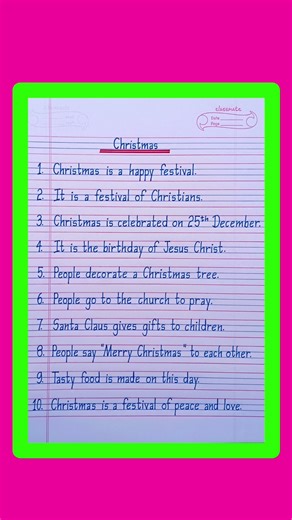 classmate
Date
Page
Christmas
1. Christmas is a happy festival.
2. It is a festival of Christians.
3. Christmas is celebrated on 25th December.
4. It is the birthday of Jesus Christ.
5. People decorate a Christmas tree.
6. People go to the church to pray.
7. Santa Claus gives gifts to children.
8. People say "Merry Christmas" to each other.
9. Tasty food is made on this day.
10. Christmas is a festival of peace and love.